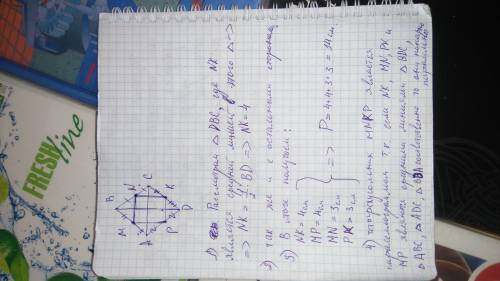 FRESH
line
B
M
N
A
C
P
K
D
1) Рассмотрим △ DBC, где NK
является средней линией этого △ =>
=> NK = 1/2 BD => NK = 4
2) Так же и с остальными сторонами
3) В итоге получаем:
NK = 4 см
MP = 4 см
MN = 3 см
PK = 3 см
} => P = 4+4+3+3 = 14 см.
4) четырехугольник MNKP является
параллелограммом т.к. если NK, MN, PK и
MP являются средними линиями △ BDC,
△ ABC, △ ADC, △ DBA соответственно то они попарно
параллельны